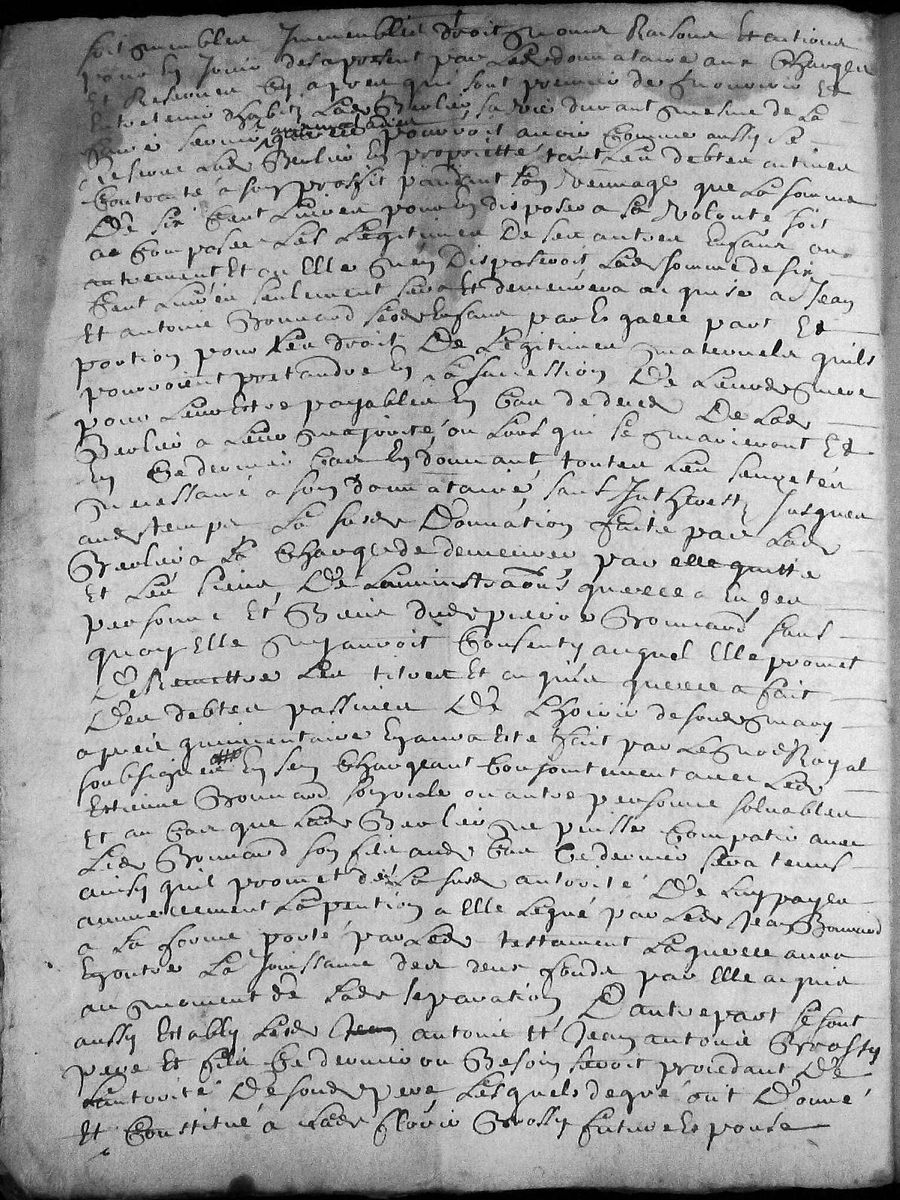 soit meubles Immeubles droit noms Raisons Et actions
pour En Jouir des apresent par Led donnataire aux Charges
Et Reserves Cy apres qui sont premier de Nourrir Et
Entretenir Lad Berlier sa vie durant mesme de la
pourroit avoir Comme aussy se
Reserve Lad Berlier En proprietté tant les debtes actives
Contracté a son proffit pandant son vefvage que La somme
De six Cent Livres pour En disposer a sa Volonte soit
a Composer Les Legitimes De ses autres Enfans ou
autrement Et ou Elle n'en Disposeroit Lad somme de six
Cent Livres seulement sera Et demeurera acquise a Jean
Et antoine Bonnard sesd Enfans par Esgalle part Et
portion pour Les droit De Legitimes maternels quils
pourroient pretandre En La succession De Leurd mere
pour Leur Estre payables En Cas de deced De Lad
Berlier a Leur majorité ou Lors qui se marieront Et
En Ce dernier Cas En donnant touttes Les seuretés
necessaire a son donnataire sans Intherest Jusques
aud temps La susd Donnation faite par Lad
Berlier a La Charge de demeurer par elle quitte
Et Les siens De Laministraõn quelle a Eu des
personne Et Biens dud pierre Bonnard sans
quoy Elle ny auroit Consenty auquel Elle promet
De Remettre Les titres Et acquis quelle a fait
Des debtes passives De L'hoirie de sond mary
apres quinventaire En aura Esté fait par Le no.re Royal
soubsigné En sen Chargeant Conjointement avec Led
Estienne Bonnard ou autre personne solvables
Et au Cas que Lad Berlier ne puisse Compatir avec
Led Bonnard son fils aud Cas Ce dernier sera tenus
ainsy quil promet de La susd autorité De Luy payer
annuellement La pention a Elle Legué par Led Jean Bonnard
a La forme porté par Led testament Laquelle aura
En outre La Jouissance des deux fonds par Elle acquis
au moment de Lad separation D'autre part se sont
aussy Estably Lesd antoine Et Jean antoine Brossy
pere Et fils Ce dernier ou Besoin seroit procedant De
L'autorité De sond pere Lesquels de gré ont Donné
Et Constitué a Lad fleurie Brossy future Espouse